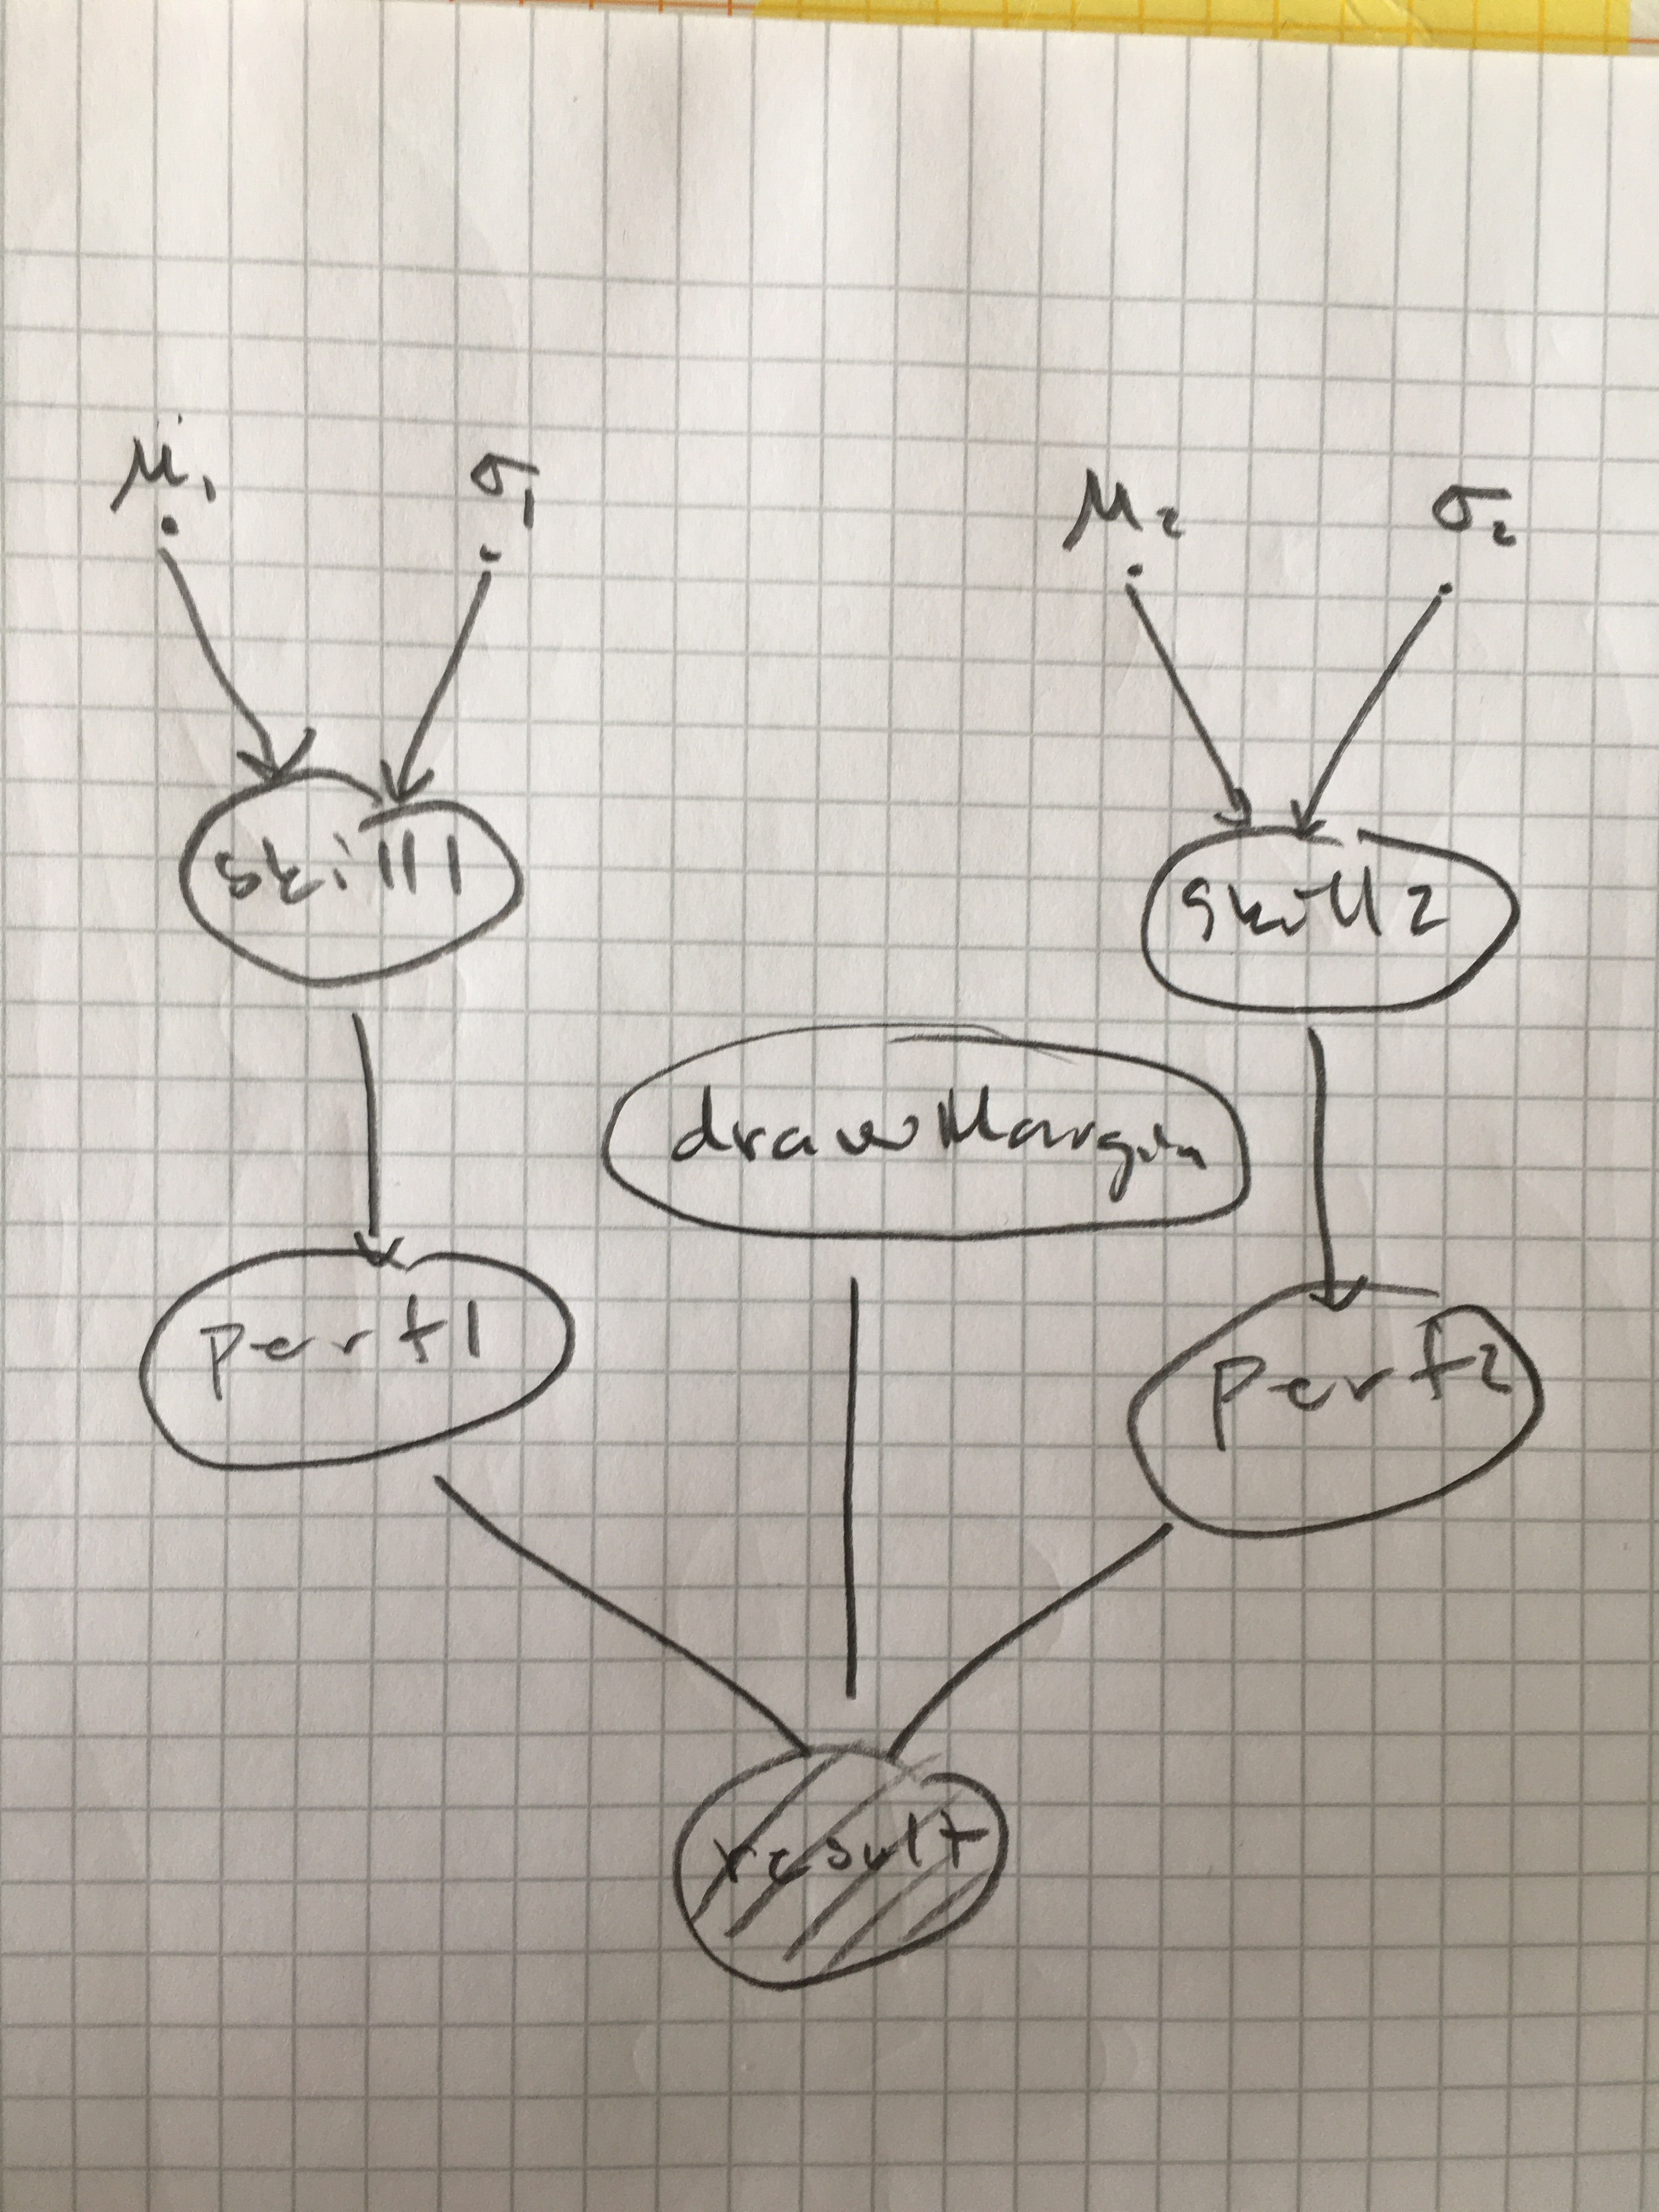 μ₁ σ₁ μ₂ σ₂
skill1 skill2
drawMargin
perf1 perf2
result